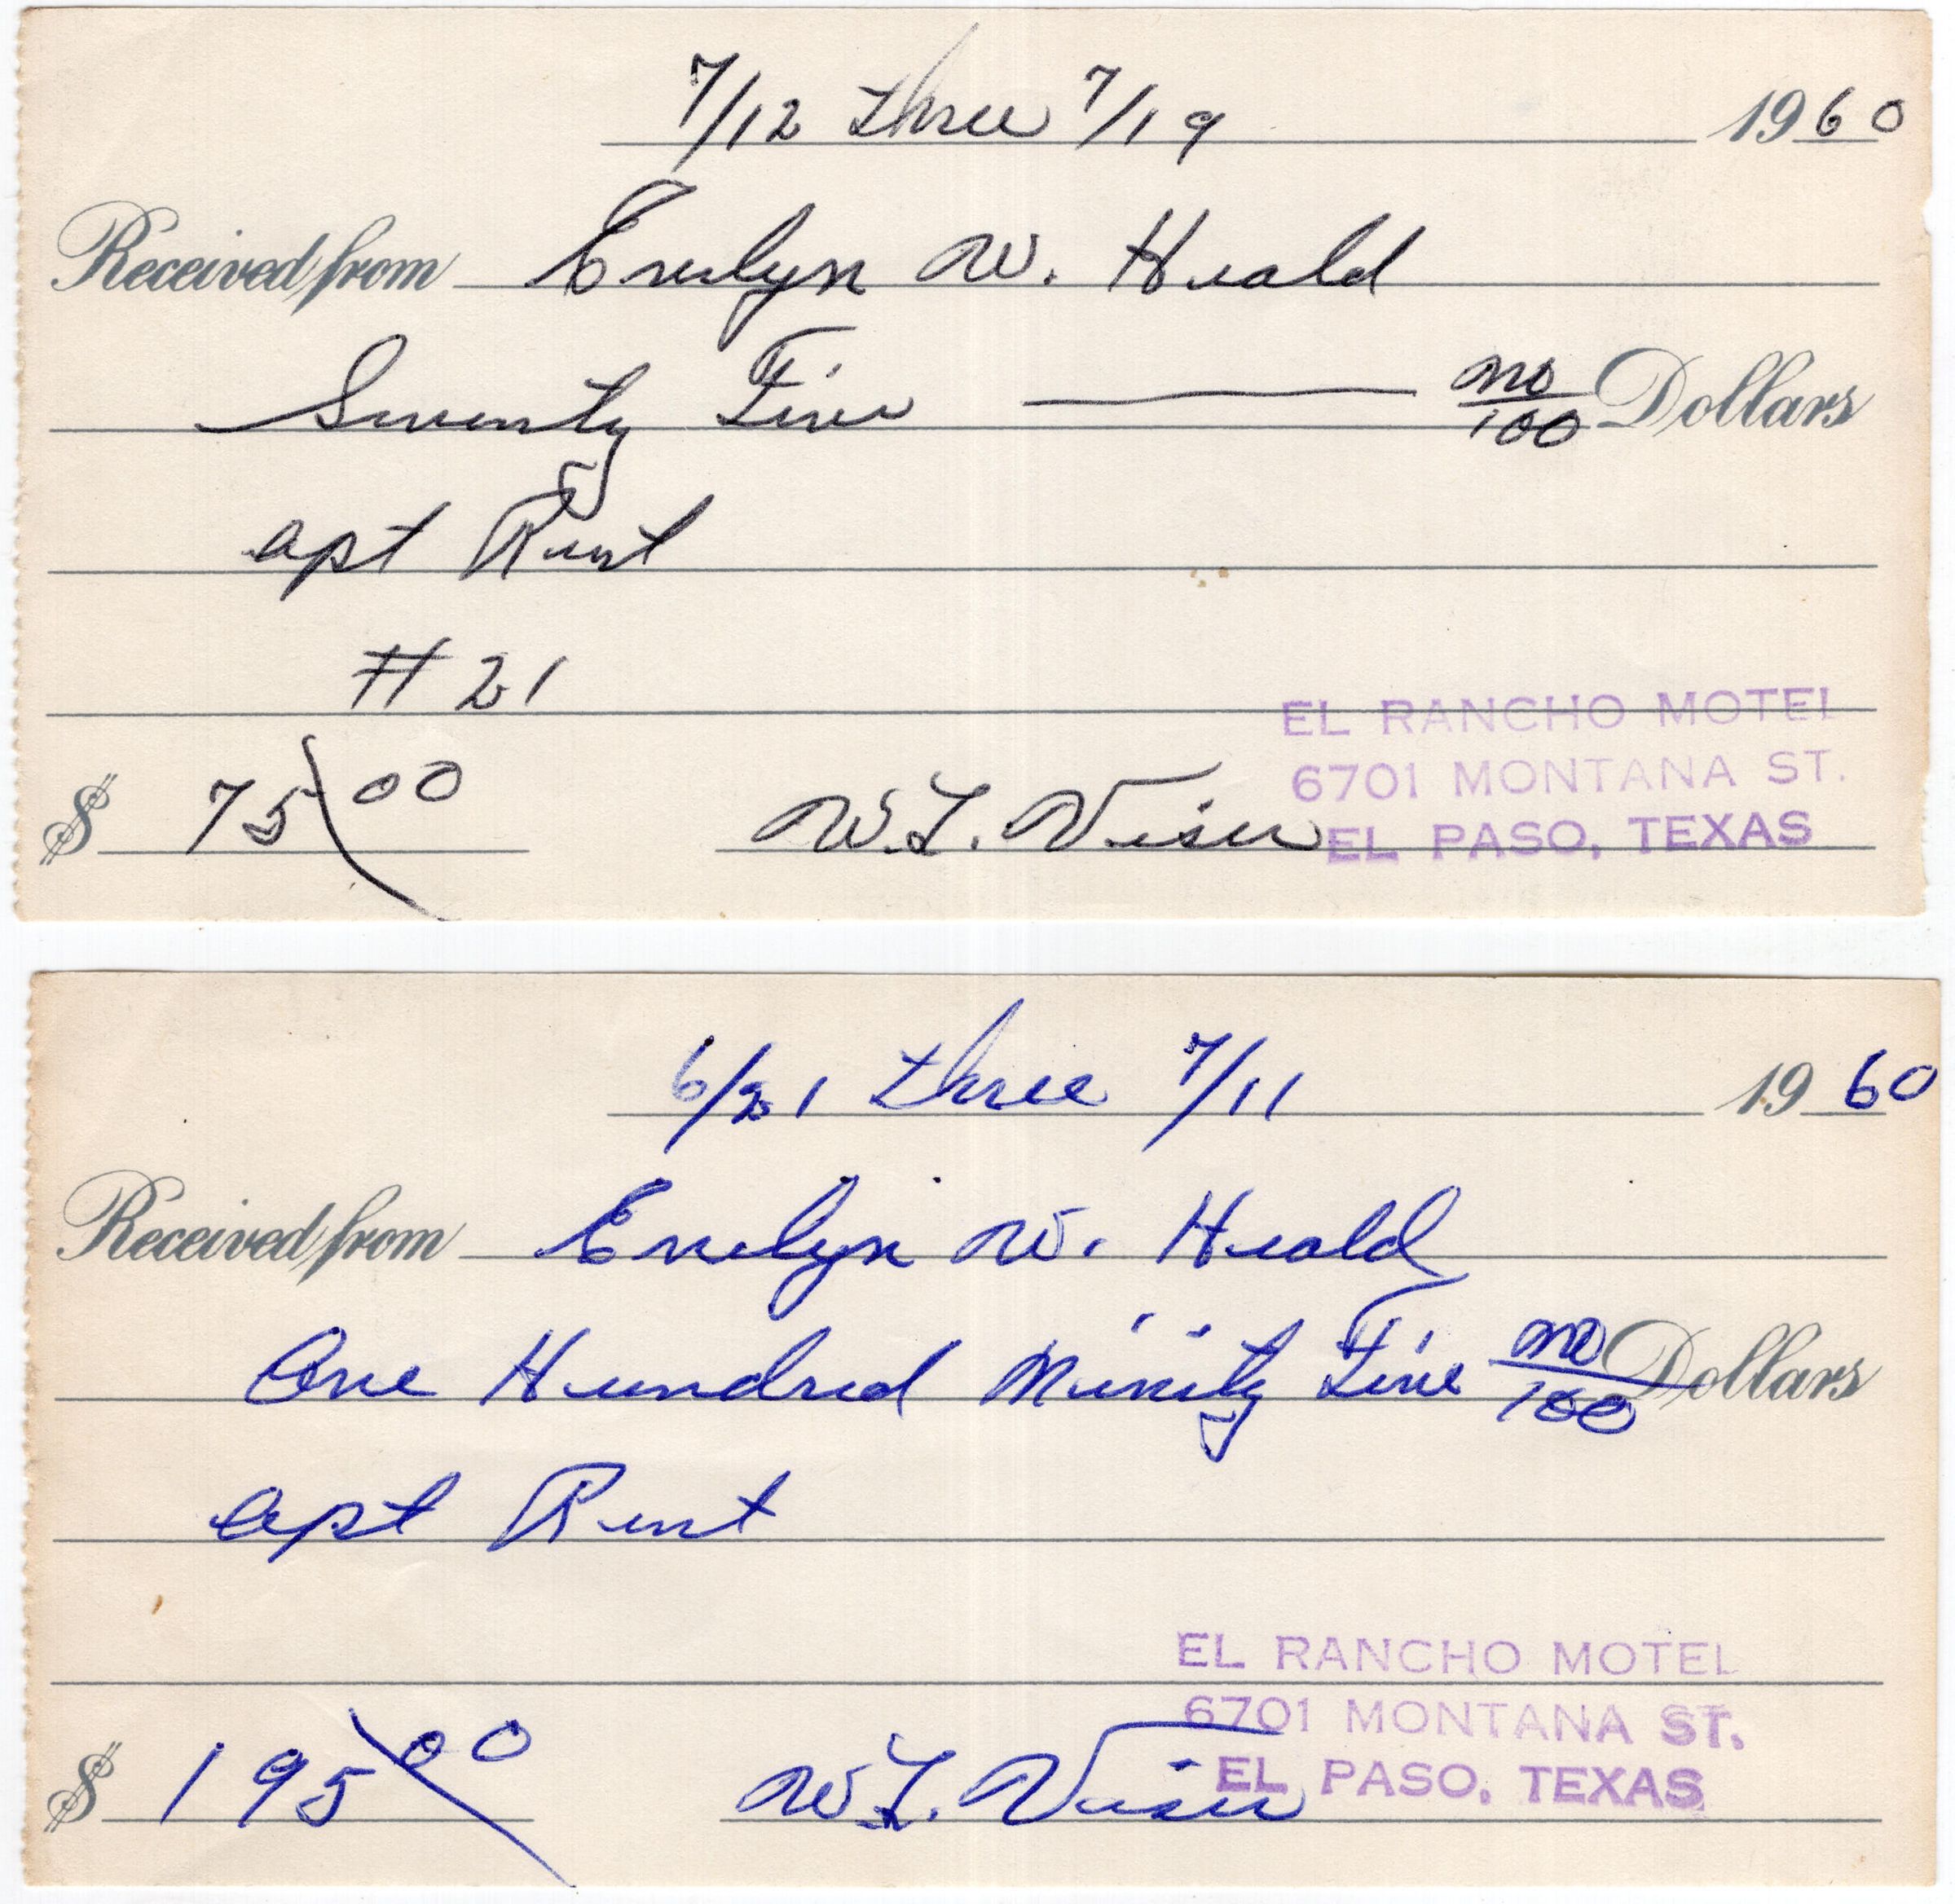 7/12 three 7/19 1960
Received from Evelyn W. Heald
Seventy Five no/100 Dollars
apt Rent
# 21
EL RANCHO MOTEL
6701 MONTANA ST.
$ 75 00 W.F.
EL PASO, TEXAS
6/21 three 7/11 1960
Received from Evelyn W. Heald
One Hundred Ninity Five no/100 Dollars
apt Rent
EL RANCHO MOTEL
6701 MONTANA ST.
$ 195 00 W.F.
EL PASO, TEXAS